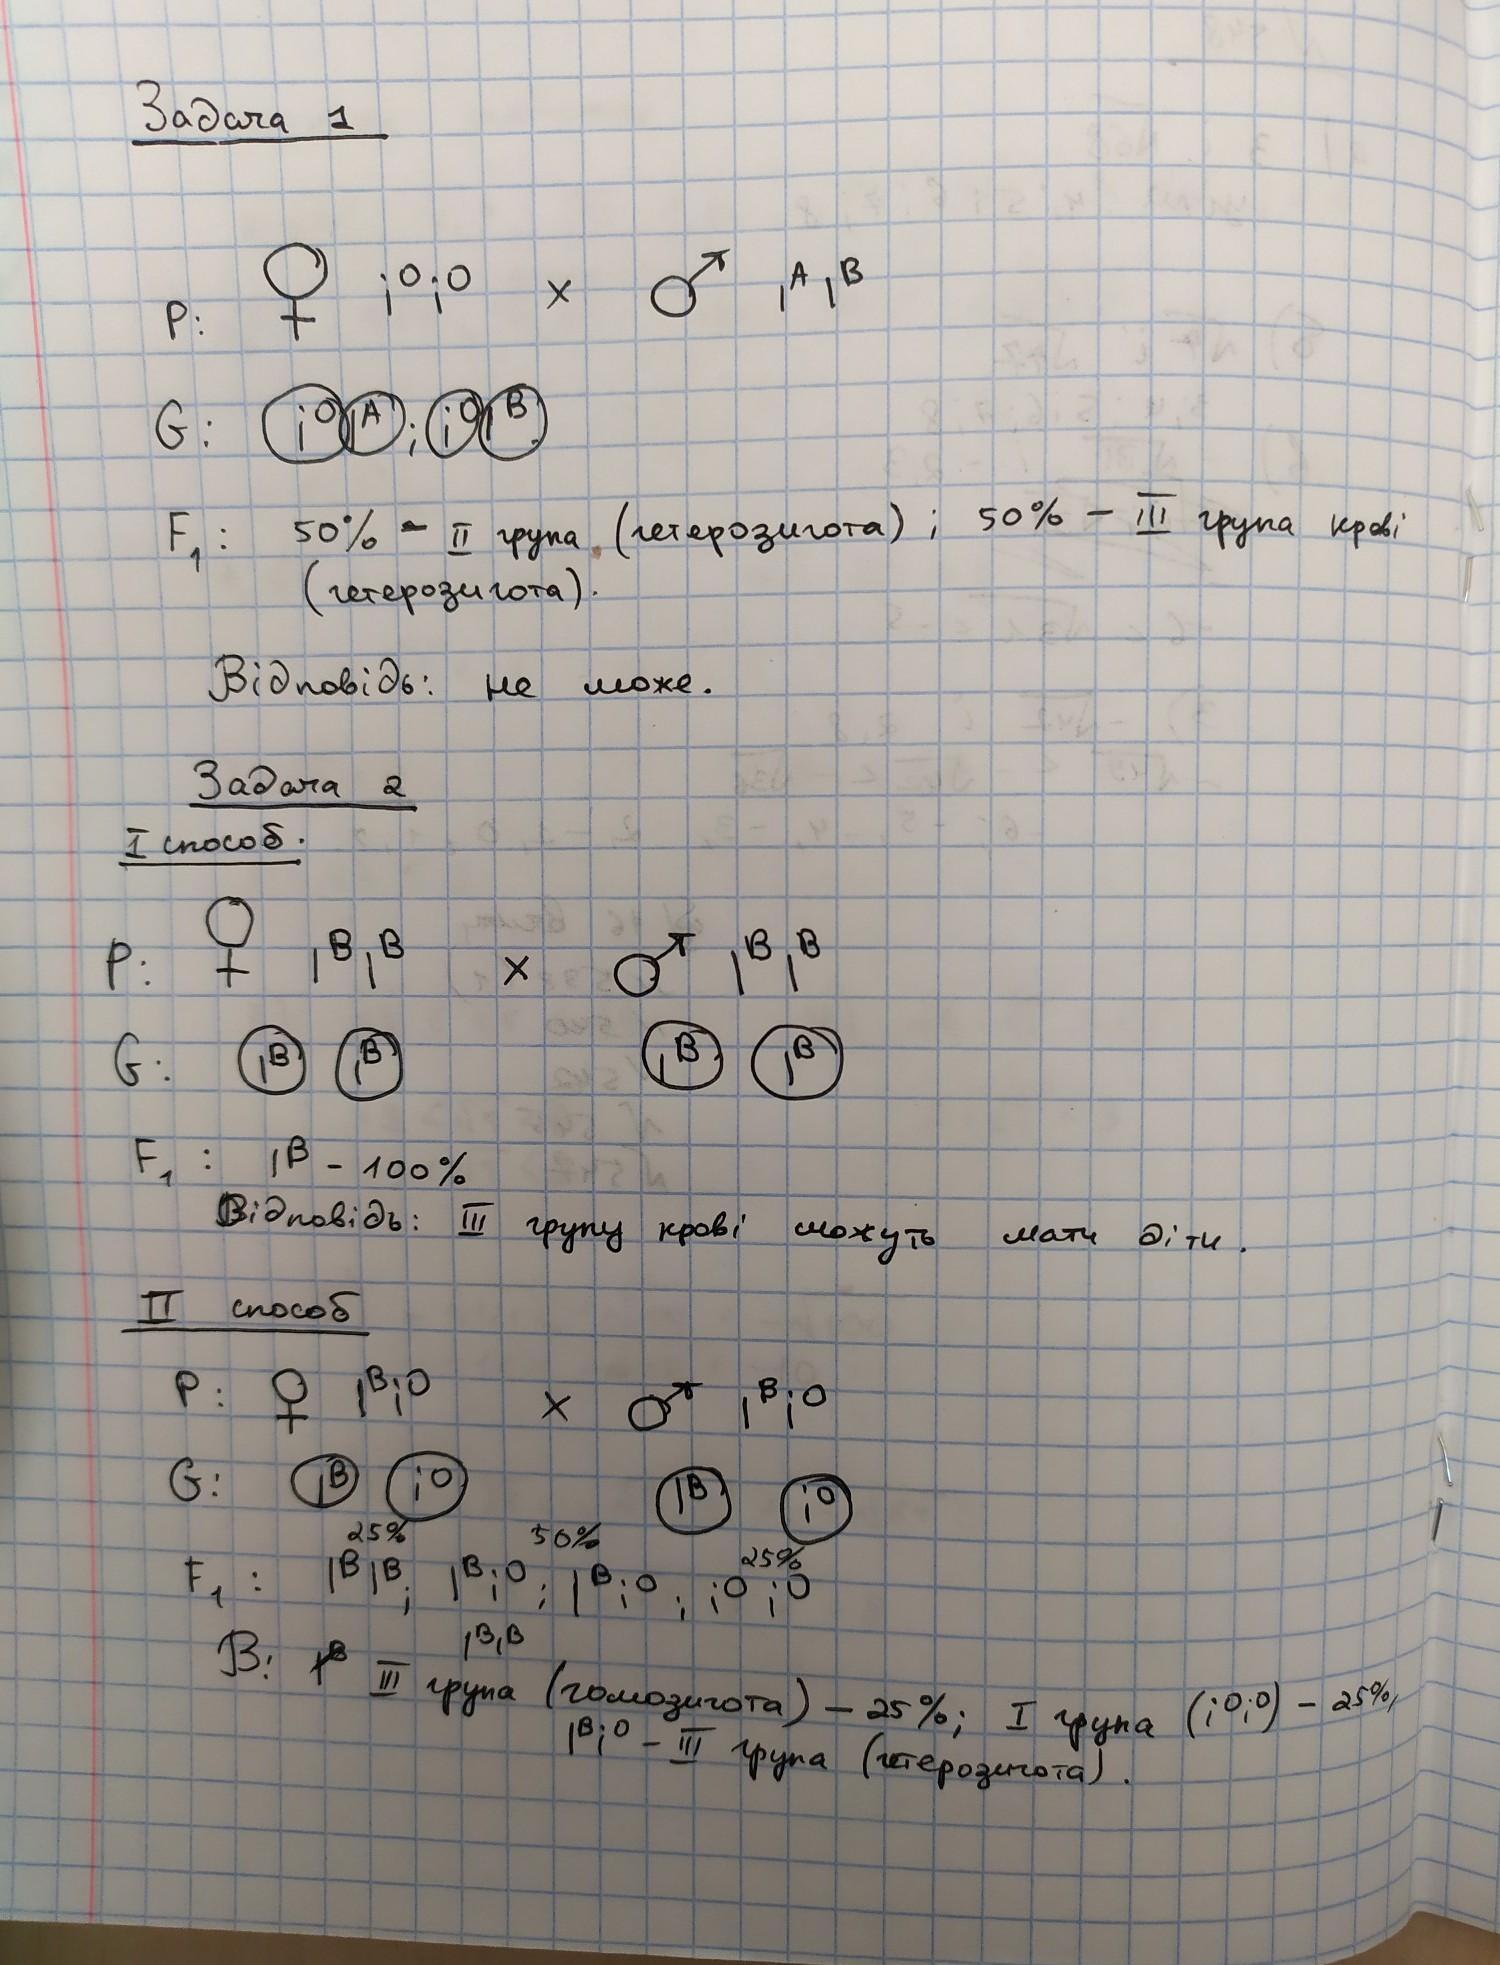 Задача 1
P: ♀ i⁰i⁰ × ♂ IᴬIᴮ
G: i⁰ Iᴬ ; i⁰ Iᴮ
F₁: 50% - II група (гетерозигота) ; 50% - III група крові
(гетерозигота).
Відповідь: не може.
Задача 2
I спосіб.
P: ♀ IᴮIᴮ × ♂ IᴮIᴮ
G: Iᴮ Iᴮ Iᴮ Iᴮ
F₁ : Iᴮ - 100%
Відповідь: III групу крові можуть мати діти.
II спосіб
P: ♀ Iᴮi⁰ × ♂ Iᴮi⁰
G: Iᴮ i⁰ Iᴮ i⁰
25% 50% 25%
F₁ : IᴮIᴮ; Iᴮi⁰ ; Iᴮi⁰ ; i⁰i⁰
IᴮIᴮ
В: III група (гомозигота) - 25%; I група (i⁰i⁰) - 25%,
Iᴮi⁰ - III група (гетерозигота).